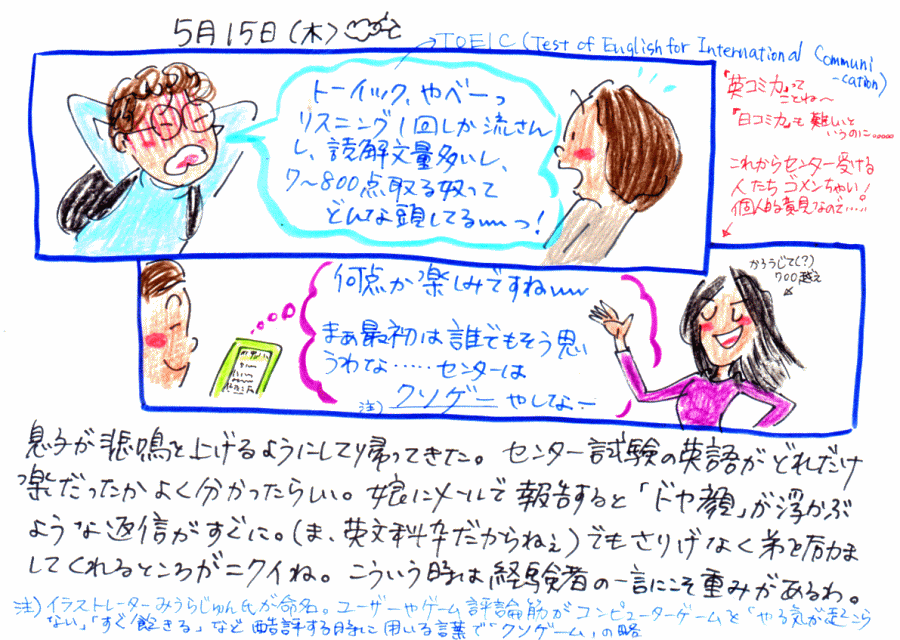 5月15日(木)
TOEIC (Test of English for International Communi
-cation)
「英コミ力」って
ことね〜
「日コミ力」も難しいと
いうのに……
これからセンター受ける
人たちゴメンちゃい!
個人的意見なので…!!
トーイック、やべーっ
リスニング1回しか流さん
し、読解文量多いし、
7〜800点取る奴って
どんな頭してるww っ!
かろうじて(?)
700越え
何点か楽しみですねwww
まぁ最初は誰でもそう思
うわな……センターは
注) クソゲーやしなー
息子が悲鳴を上げるようにして帰ってきた。センター試験の英語がどれだけ
楽だったかよく分かったらしい。娘にメールで報告すると「ドヤ顔」が浮かぶ
ような返信がすぐに。(ま、英文科卒だからねぇ)でもさりげなく弟を励ま
してくれるところがニクイね。こういう時は経験者の一言にこそ重みがあるわ。
注)イラストレーターみうらじゅん氏が命名。ユーザーやゲーム評論筋がコンピューターゲームを「やる気が起こら
ない」「すぐ飽きる」など酷評する時に用いる言葉で「クソゲーム」の略